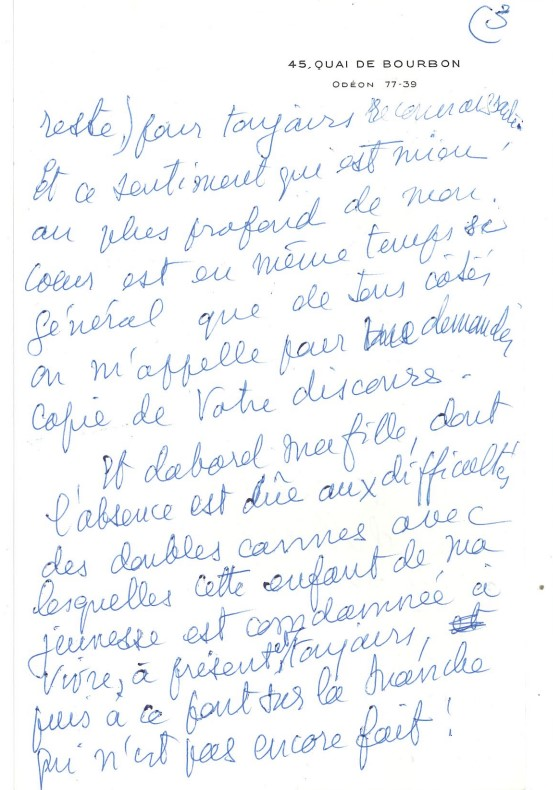 3
45, QUAI DE BOURBON
ODÉON 77-39
reste,) pour toujours reconnaissante.
Et ce sentiment qui est mien
au plus profond de mon
coeur est en même temps si
général que de tous côtés
on m'appelle pour demander
copie de Votre discours -
Et d'abord ma fille, dont
l'absence est dûe aux difficultés
des doubles cannes avec
lesquelles cette enfant de ma
jeunesse est condamnée à
vivre, à présent et toujours, et
puis à ce pont sur la Manche
qui n'est pas encore fait !